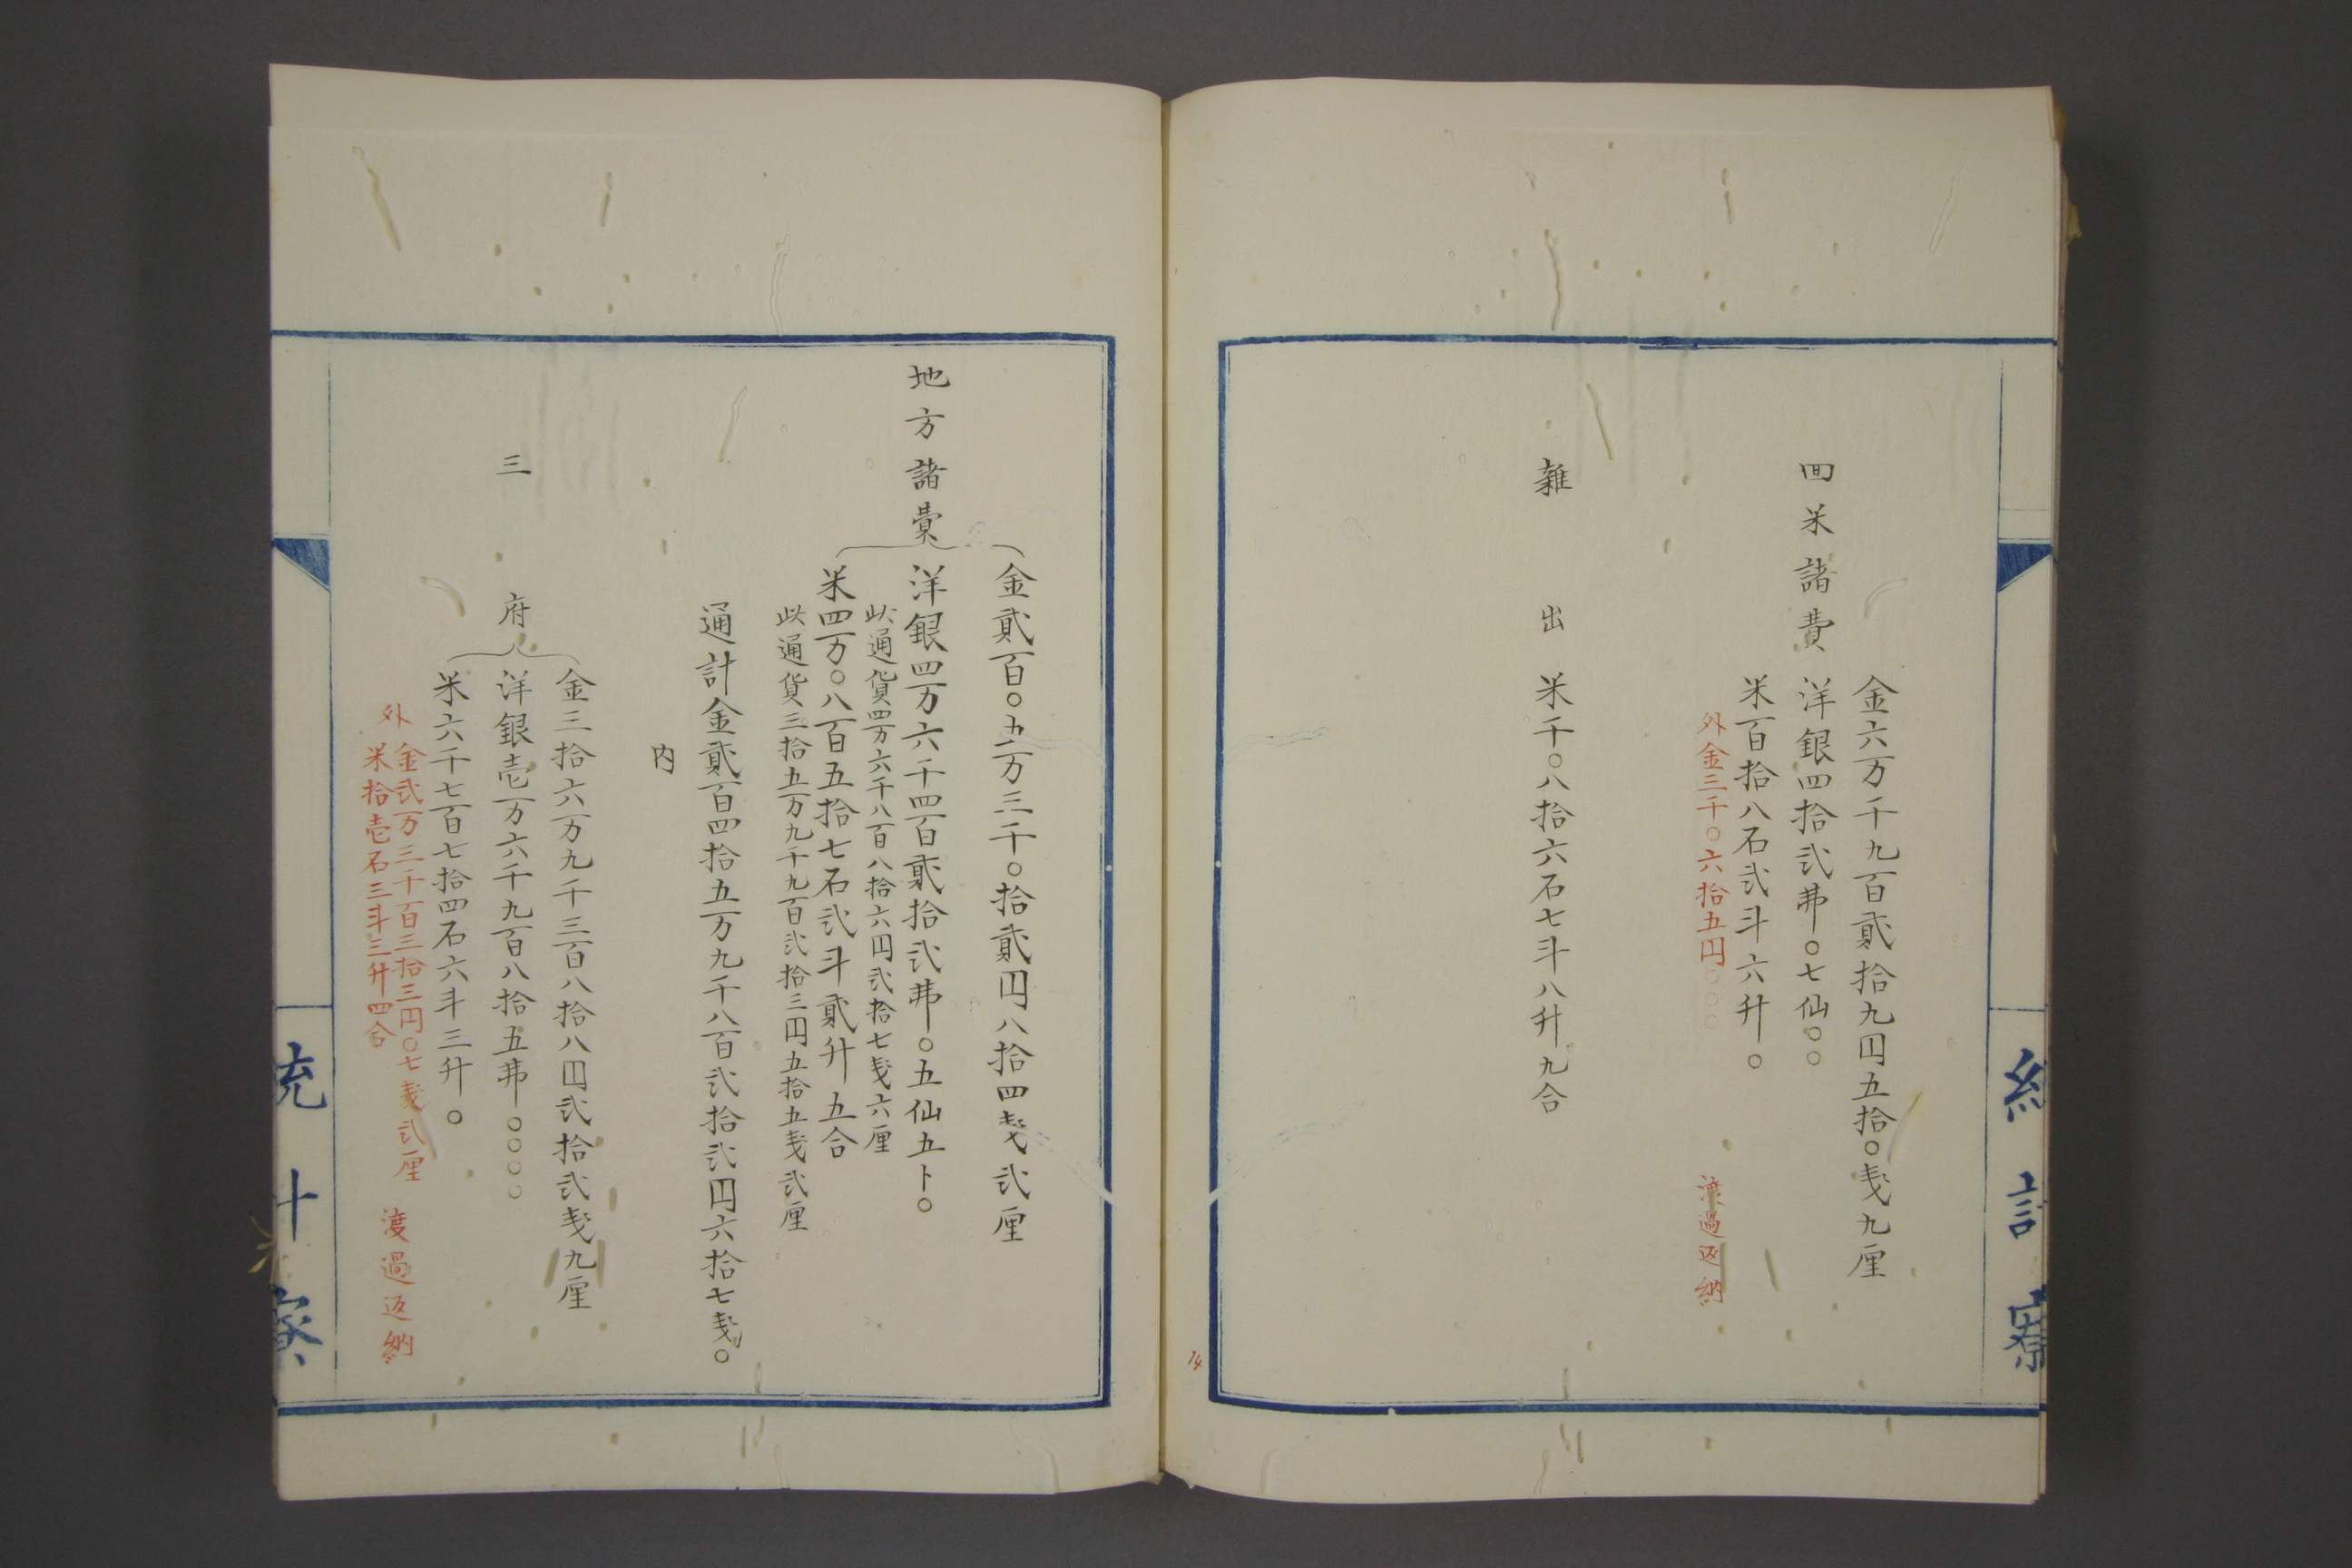 回米諸費
金六万千九百貳拾九円五拾〇戋九厘
洋銀四拾弐弗〇七仙〇〇
米百拾八石弐斗六升〇
外金三千〇六拾五円〇〇〇 渡過返納
雑出 米千〇八拾六石七斗八升九合
14
地方諸費
金貳百〇五万三千〇拾貳円八拾四戋弐厘
洋銀四万六千四百貳拾弐弗〇五仙五ト〇
此通貨四万六千八百八拾六円弐拾七戋六厘
米四万〇八百五拾七石弐斗貳升五合
此通貨三拾五万九千九百弐拾三円五拾五戋弐厘
通計金貳百四拾五万九千八百弐拾弐円六拾七戋〇
内
三府
金三拾六万九千三百八拾八円弐拾弐戋九厘
洋銀壱万六千九百八拾五弗〇〇〇〇
米六千七百七拾四石六斗三升〇
外 金弐万三千百三拾三円〇七戋弐厘
米拾壱石三斗三升四合 渡過返納
統計寮